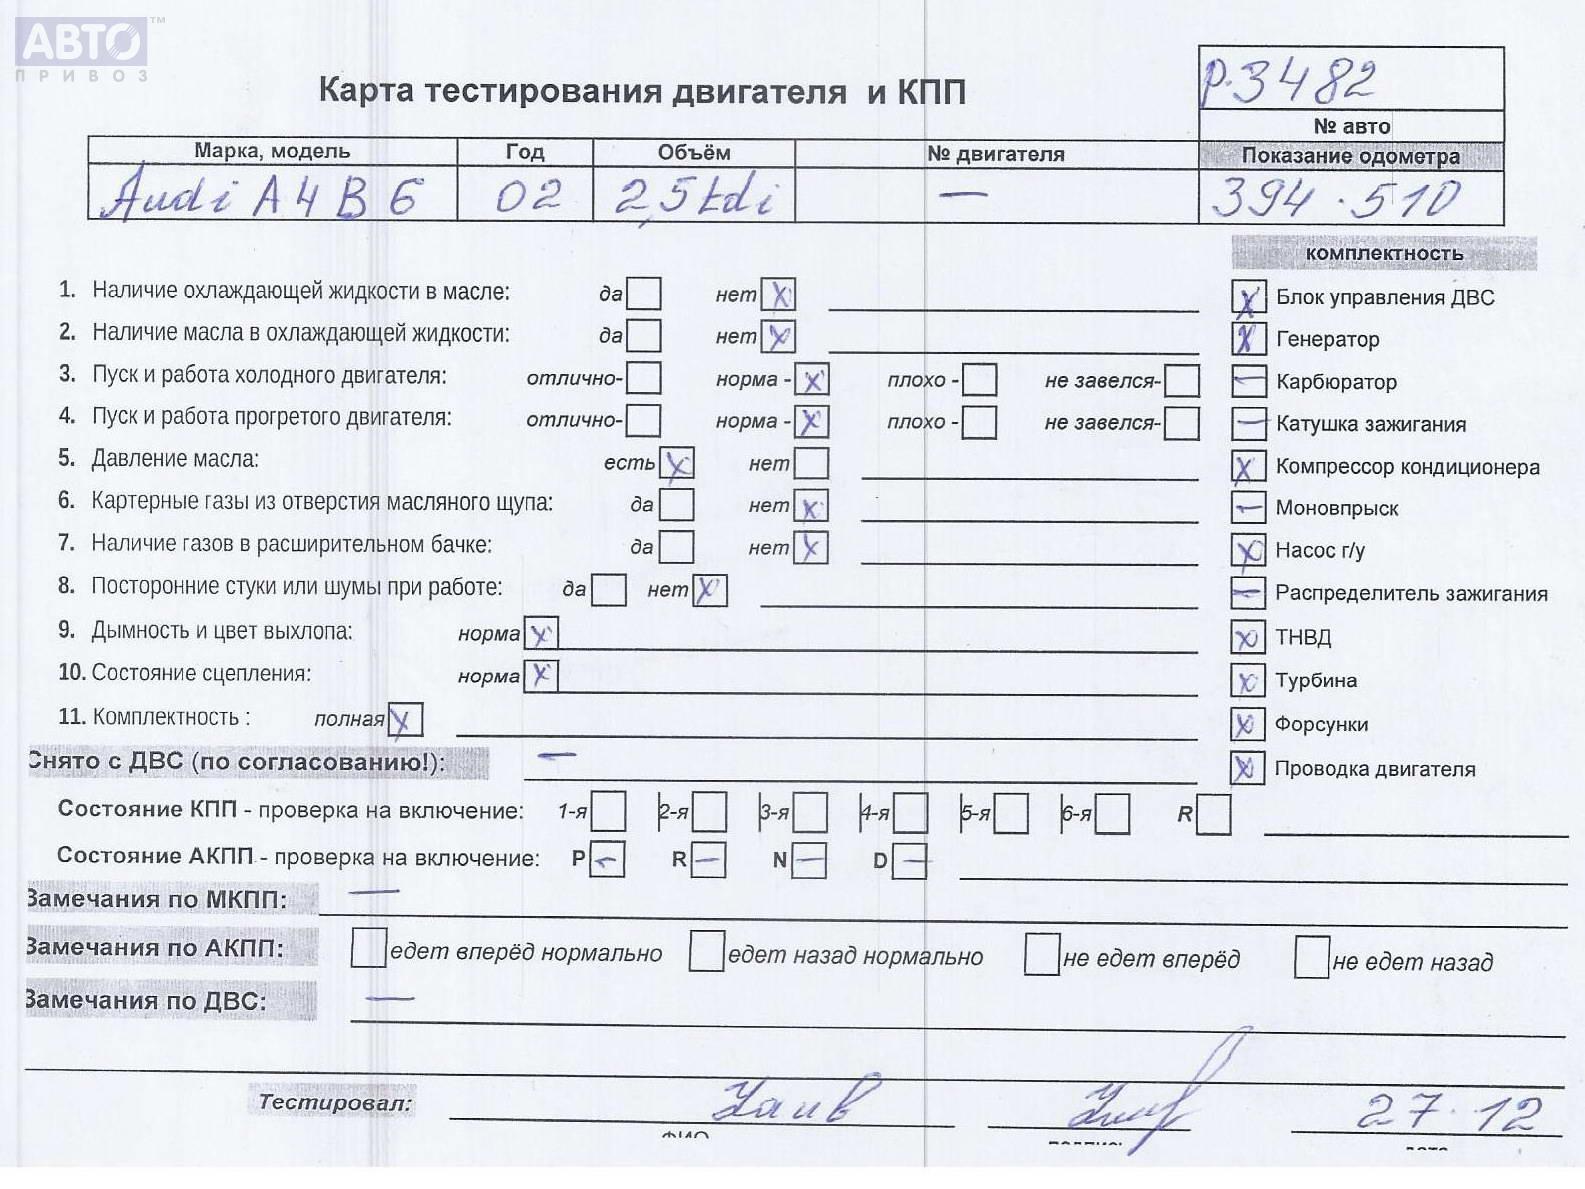 АВТО™
ПРИВОЗ
Карта тестирования двигателя и КПП
р.3482
№ авто
Марка, модель Год Объём № двигателя Показание одометра
Audi A4 B6 02 2,5 tdi — 394.510
комплектность
1. Наличие охлаждающей жидкости в масле: да нет X
Блок управления ДВС X
2. Наличие масла в охлаждающей жидкости: да нет X
Генератор X
3. Пуск и работа холодного двигателя: отлично- норма - X плохо - не завелся-
Карбюратор —
4. Пуск и работа прогретого двигателя: отлично- норма - X плохо - не завелся-
Катушка зажигания —
5. Давление масла: есть X нет
Компрессор кондиционера X
6. Картерные газы из отверстия масляного щупа: да нет X
Моновпрыск —
7. Наличие газов в расширительном бачке: да нет X
Насос г/у X
8. Посторонние стуки или шумы при работе: да нет X
Распределитель зажигания —
9. Дымность и цвет выхлопа: норма X
ТНВД X
10. Состояние сцепления: норма X
Турбина X
11. Комплектность : полная X
Форсунки X
Снято с ДВС (по согласованию!): —
Проводка двигателя X
Состояние КПП - проверка на включение: 1-я 2-я 3-я 4-я 5-я 6-я R
Состояние АКПП - проверка на включение: P — R — N — D —
Замечания по МКПП: —
Замечания по АКПП: едет вперёд нормально едет назад нормально не едет вперёд не едет назад
Замечания по ДВС: —
Тестировал: 27.12
ФИО подпись дата